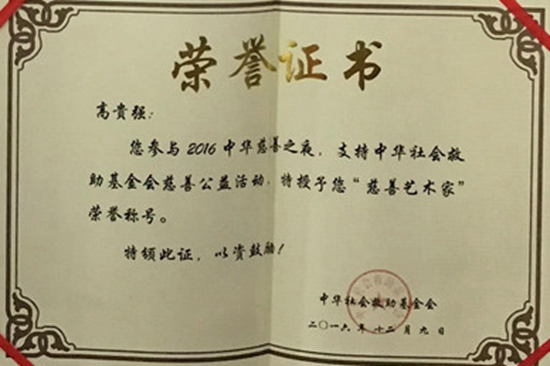 荣誉证书
高贵强：
您参与2016中华慈善之夜，支持中华社会救
助基金会慈善公益活动，特授予您“慈善艺术家”
荣誉称号。
特颁此证，以资鼓励！
中华社会救助基金会
二〇一六年十二月九日